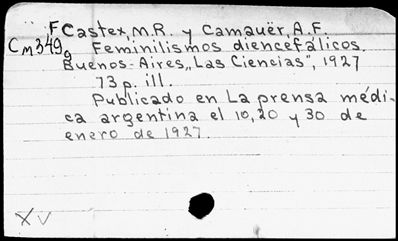 F Castex, M.R. y Camauër, A.F.
Cm349g Feminilismos diencefálicos.
Buenos-Aires, „Las Ciencias", 1927
73 p. ill.
Publicado en La prensa médi-
ca argentina el 10, 20 y 30 de
enero de 1927.
XV